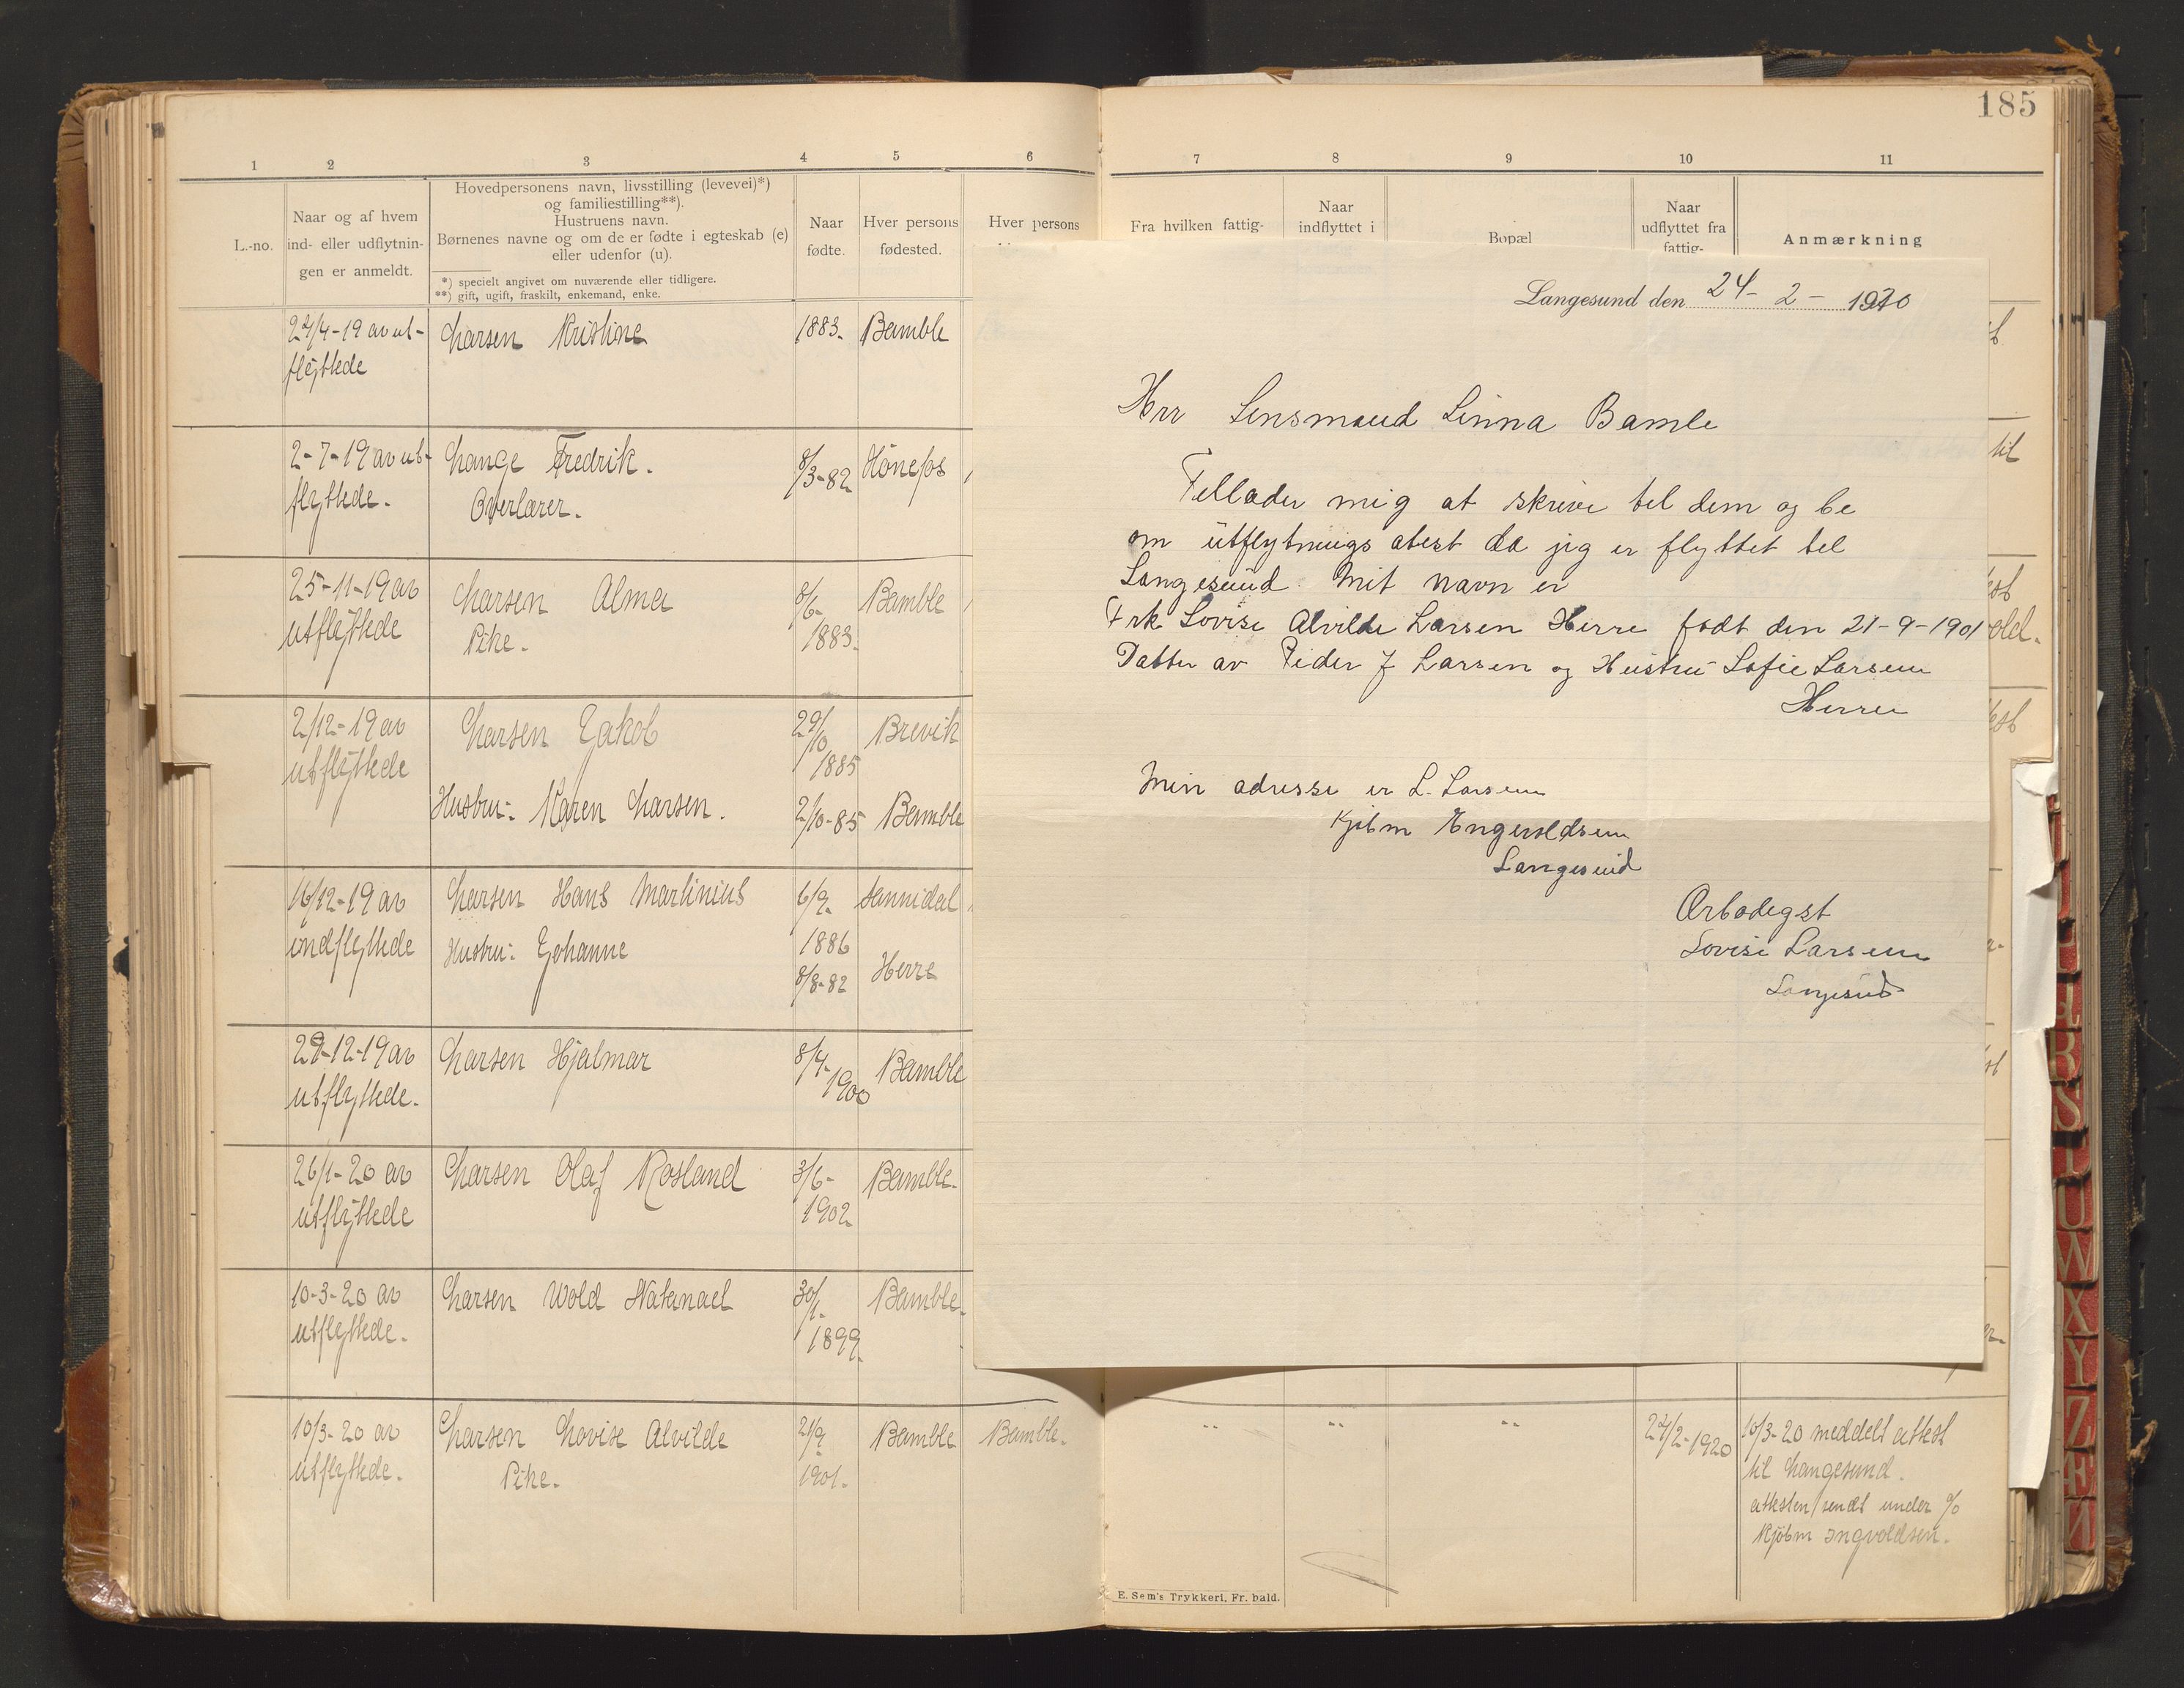 185
1 2 3 4 5 6 7 8 9 10 11
L.-no.
Naar og af hvem
ind- eller udflytnin-
gen er anmeldt.
Hovedpersonens navn, livsstilling (levevei)*)
og familiestilling**).
Hustruens navn.
Børnenes navne og om de er fødte i egteskab (e)
eller udenfor (u).
*) specielt angivet om nuværende eller tidligere.
**) gift, ugift, fraskilt, enkemand, enke.
Naar
fødte.
Hver persons
fødested.
Hver persons
Fra hvilken fattig-
Naar
indflyttet i
Bopæl
Naar
udflyttet fra
fattig-
Anmærkning
24/4-19 av ut-
flyttede
Larsen Kristine
1883.
Bamble
2-7-19 av ut-
flyttede.
Lange Fredrik.
Overlærer.
8/3-82
Hönefos
25-11-19 av
utflyttede
Larsen Alma
Pike.
8/6-
1883.
Bamble
2/12-19 av
utflyttede
Larsen Jakob
29/10
1885
Brevik
Hustru: Karen Larsen.
2/10-85
Bamble
16/12-19 av
indflyttede
Larsen Hans Martinius
6/9-
1886
Sannidal
Hustru: Johanne
8/8-82
Herre
29-12-19 av
utflyttede.
Larsen Hjalmar
8/4-
1900
Bamble
26/1-20 av
utflyttede
Larsen Olaf Rosland
3/6-
1902
Bamble.
10-3-20 av
utflyttede.
Larsen Wold Natanael
30/1-
1899.
Bamble.
10/3-20 av
utflyttede.
Larsen Lovise Alvilde
Pike.
21/9
1901.
Bamble
Bamble.
" " "
24/2-1920
10/3-20 meddelt attest
til Langesund.
attesten sendt under %
Kjöbm Ingvoldsen.
E. Sem's Trykkeri, Fr. hald.
Langesund den 24-2-1920
Herr Lensmand Linna Bamle
Tellader mig at skrive tel dem og be
om utflytnings atest da jig er flyttet tel
Langesund. Mit navn er
Frk Lovise Alvilde Larsen Herre født den 21-9-1901
Datter av Peder J Larsen og Hustru Sofie Larsen
Herre
Min adresse er L. Larsen
Kjøbm Engvoldsen
Langesund
Ærbødigst
Lovise Larsen
Langesund
til
R
S
T
U
W
X
Y
Z
Æ
Ø